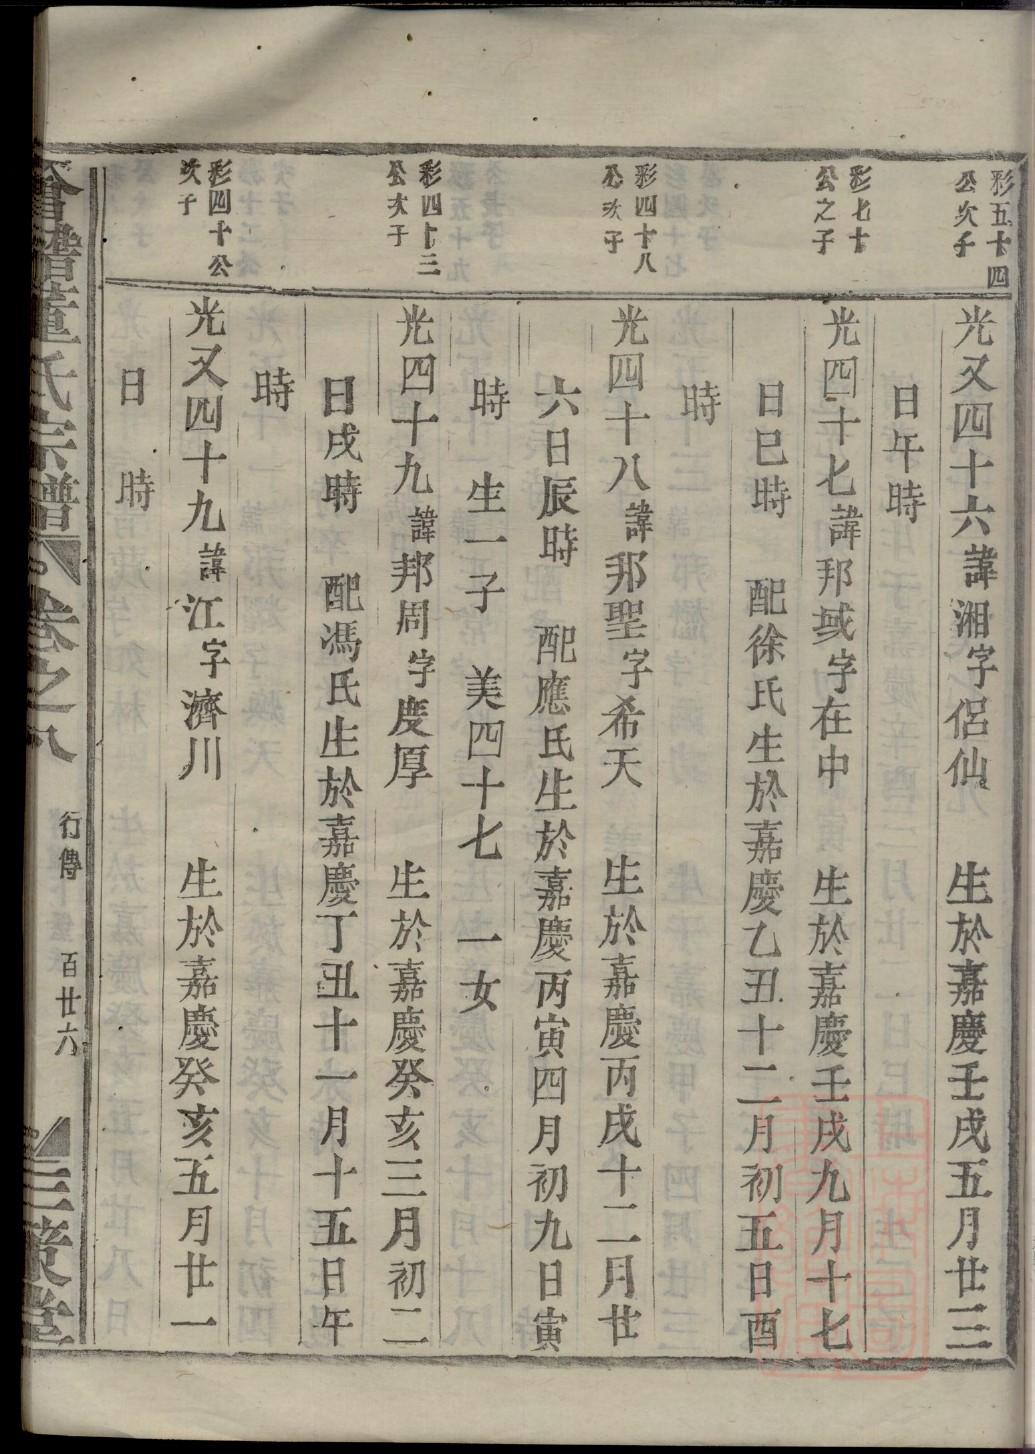 彩五十四
公次子
光又四十六諱湘字侶仙 生於嘉慶壬戌五月廿三
日午時
彩七十
公之子
光四十七諱邦域字在中 生於嘉慶壬戌九月十七
日巳時 配徐氏生於嘉慶乙丑十二月初五日酉
時
彩四十八
公次子
光四十八諱邦聖字希天 生於嘉慶丙戌十二月廿
六日辰時 配應氏生於嘉慶丙寅四月初九日寅
時 生一子 美四十七 一女
彩四十三
公次子
光四十九諱邦周字慶厚 生於嘉慶癸亥三月初二
日戌時 配馮氏生於嘉慶丁丑十一月十五日午
時
彩四十公
次子
光又四十九諱江字濟川 生於嘉慶癸亥五月廿一
日 時
董氏宗譜 卷之八 行傳 百廿六 三策堂